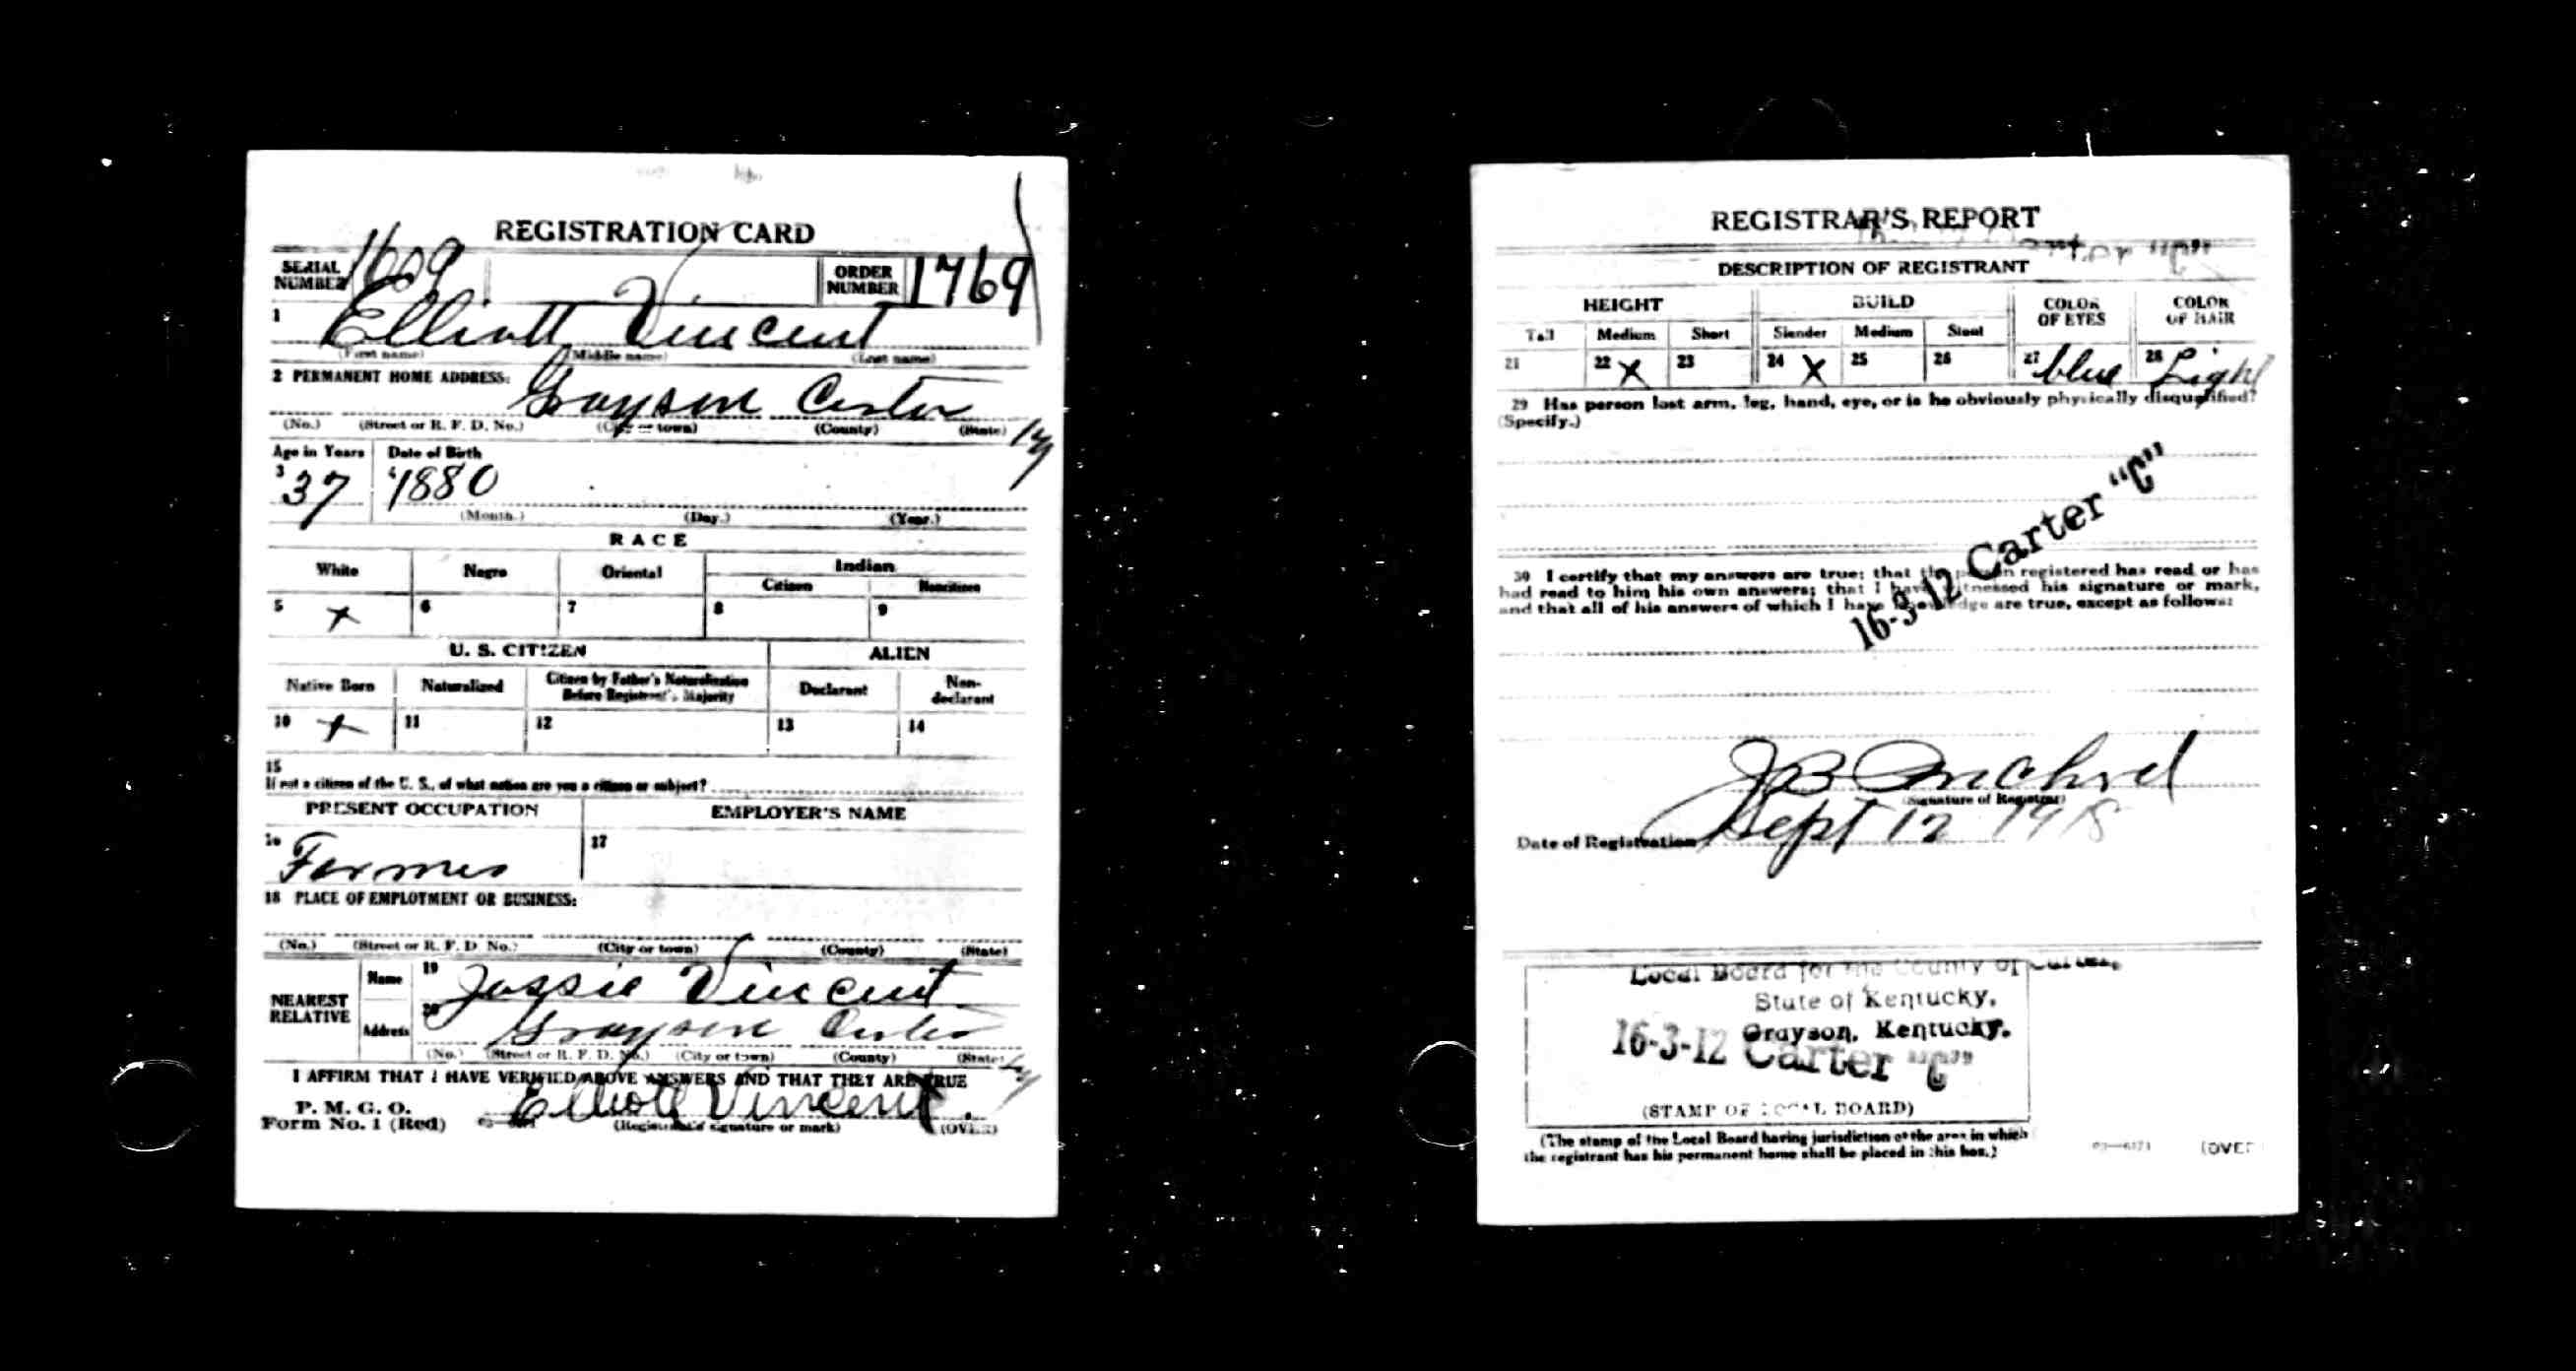 REGISTRATION CARD
SERIAL NUMBER 1609 ORDER NUMBER 1769
1 Elliott Vincent
(First name) (Middle name) (Last name)
2 PERMANENT HOME ADDRESS:
Grayson Carter Ky
(No.) (Street or R. F. D. No.) (City or town) (County) (State)
Age in Years Date of Birth
3 37 4 1880
(Month.) (Day.) (Year.)
RACE
White Negro Oriental Indian
Citizen Noncitizen
5 X 6 7 8 9
U. S. CITIZEN ALIEN
Native Born Naturalized Citizen by Father's Naturalization Before Registrant's Majority Declarant Non-declarant
10 X 11 12 13 14
15
If not a citizen of the U. S., of what nation are you a citizen or subject?
PRESENT OCCUPATION EMPLOYER'S NAME
16 Farmer 17
18 PLACE OF EMPLOYMENT OR BUSINESS:
(No.) (Street or R. F. D. No.) (City or town) (County) (State)
NEAREST RELATIVE Name 19 Jessie Vincent
Address 20 Grayson Carter Ky
(No.) (Street or R. F. D. No.) (City or town) (County) (State)
I AFFIRM THAT I HAVE VERIFIED ABOVE ANSWERS AND THAT THEY ARE TRUE
P. M. G. O.
Form No. 1 (Red) Elliott Vincent.
(Registrant's signature or mark) (OVER)
REGISTRAR'S REPORT
DESCRIPTION OF REGISTRANT
HEIGHT BUILD COLOR OF EYES COLOR OF HAIR
Tall Medium Short Slender Medium Stout
21 22 X 23 24 X 25 26 27 blue 28 Light
29 Has person lost arm, leg, hand, eye, or is he obviously physically disqualified?
(Specify.)
16-3-12 Carter "C"
30 I certify that my answers are true; that the person registered has read or has
had read to him his own answers; that I have witnessed his signature or mark,
and that all of his answers of which I have knowledge are true, except as follows:
J B
(Signature of Registrar)
Date of Registration Sept 12 1918
Local Board for the County of Carter,
State of Kentucky,
Grayson, Kentucky.
16-3-12 Carter "C"
(STAMP OF LOCAL BOARD)
(The stamp of the Local Board having jurisdiction of the area in which
the registrant has his permanent home shall be placed in this box.)
03—6171 (OVER